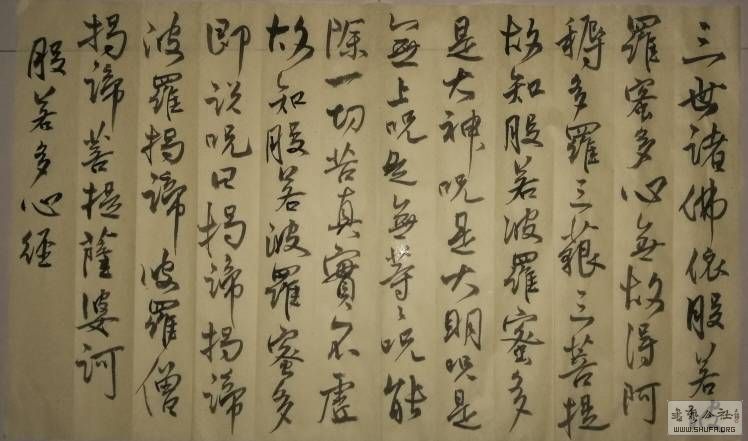 三世諸佛依般若波
羅蜜多心無故得阿
耨多羅三藐三菩提
故知般若波羅蜜多
是大神咒是大明咒是
無上咒是無等々咒能
除一切苦真實不虛
故知般若波羅蜜多
即说咒曰揭諦揭諦
波羅揭諦波羅僧
揭諦菩提薩婆訶
般若多心經
书艺公社
WWW.SHUFA.ORG